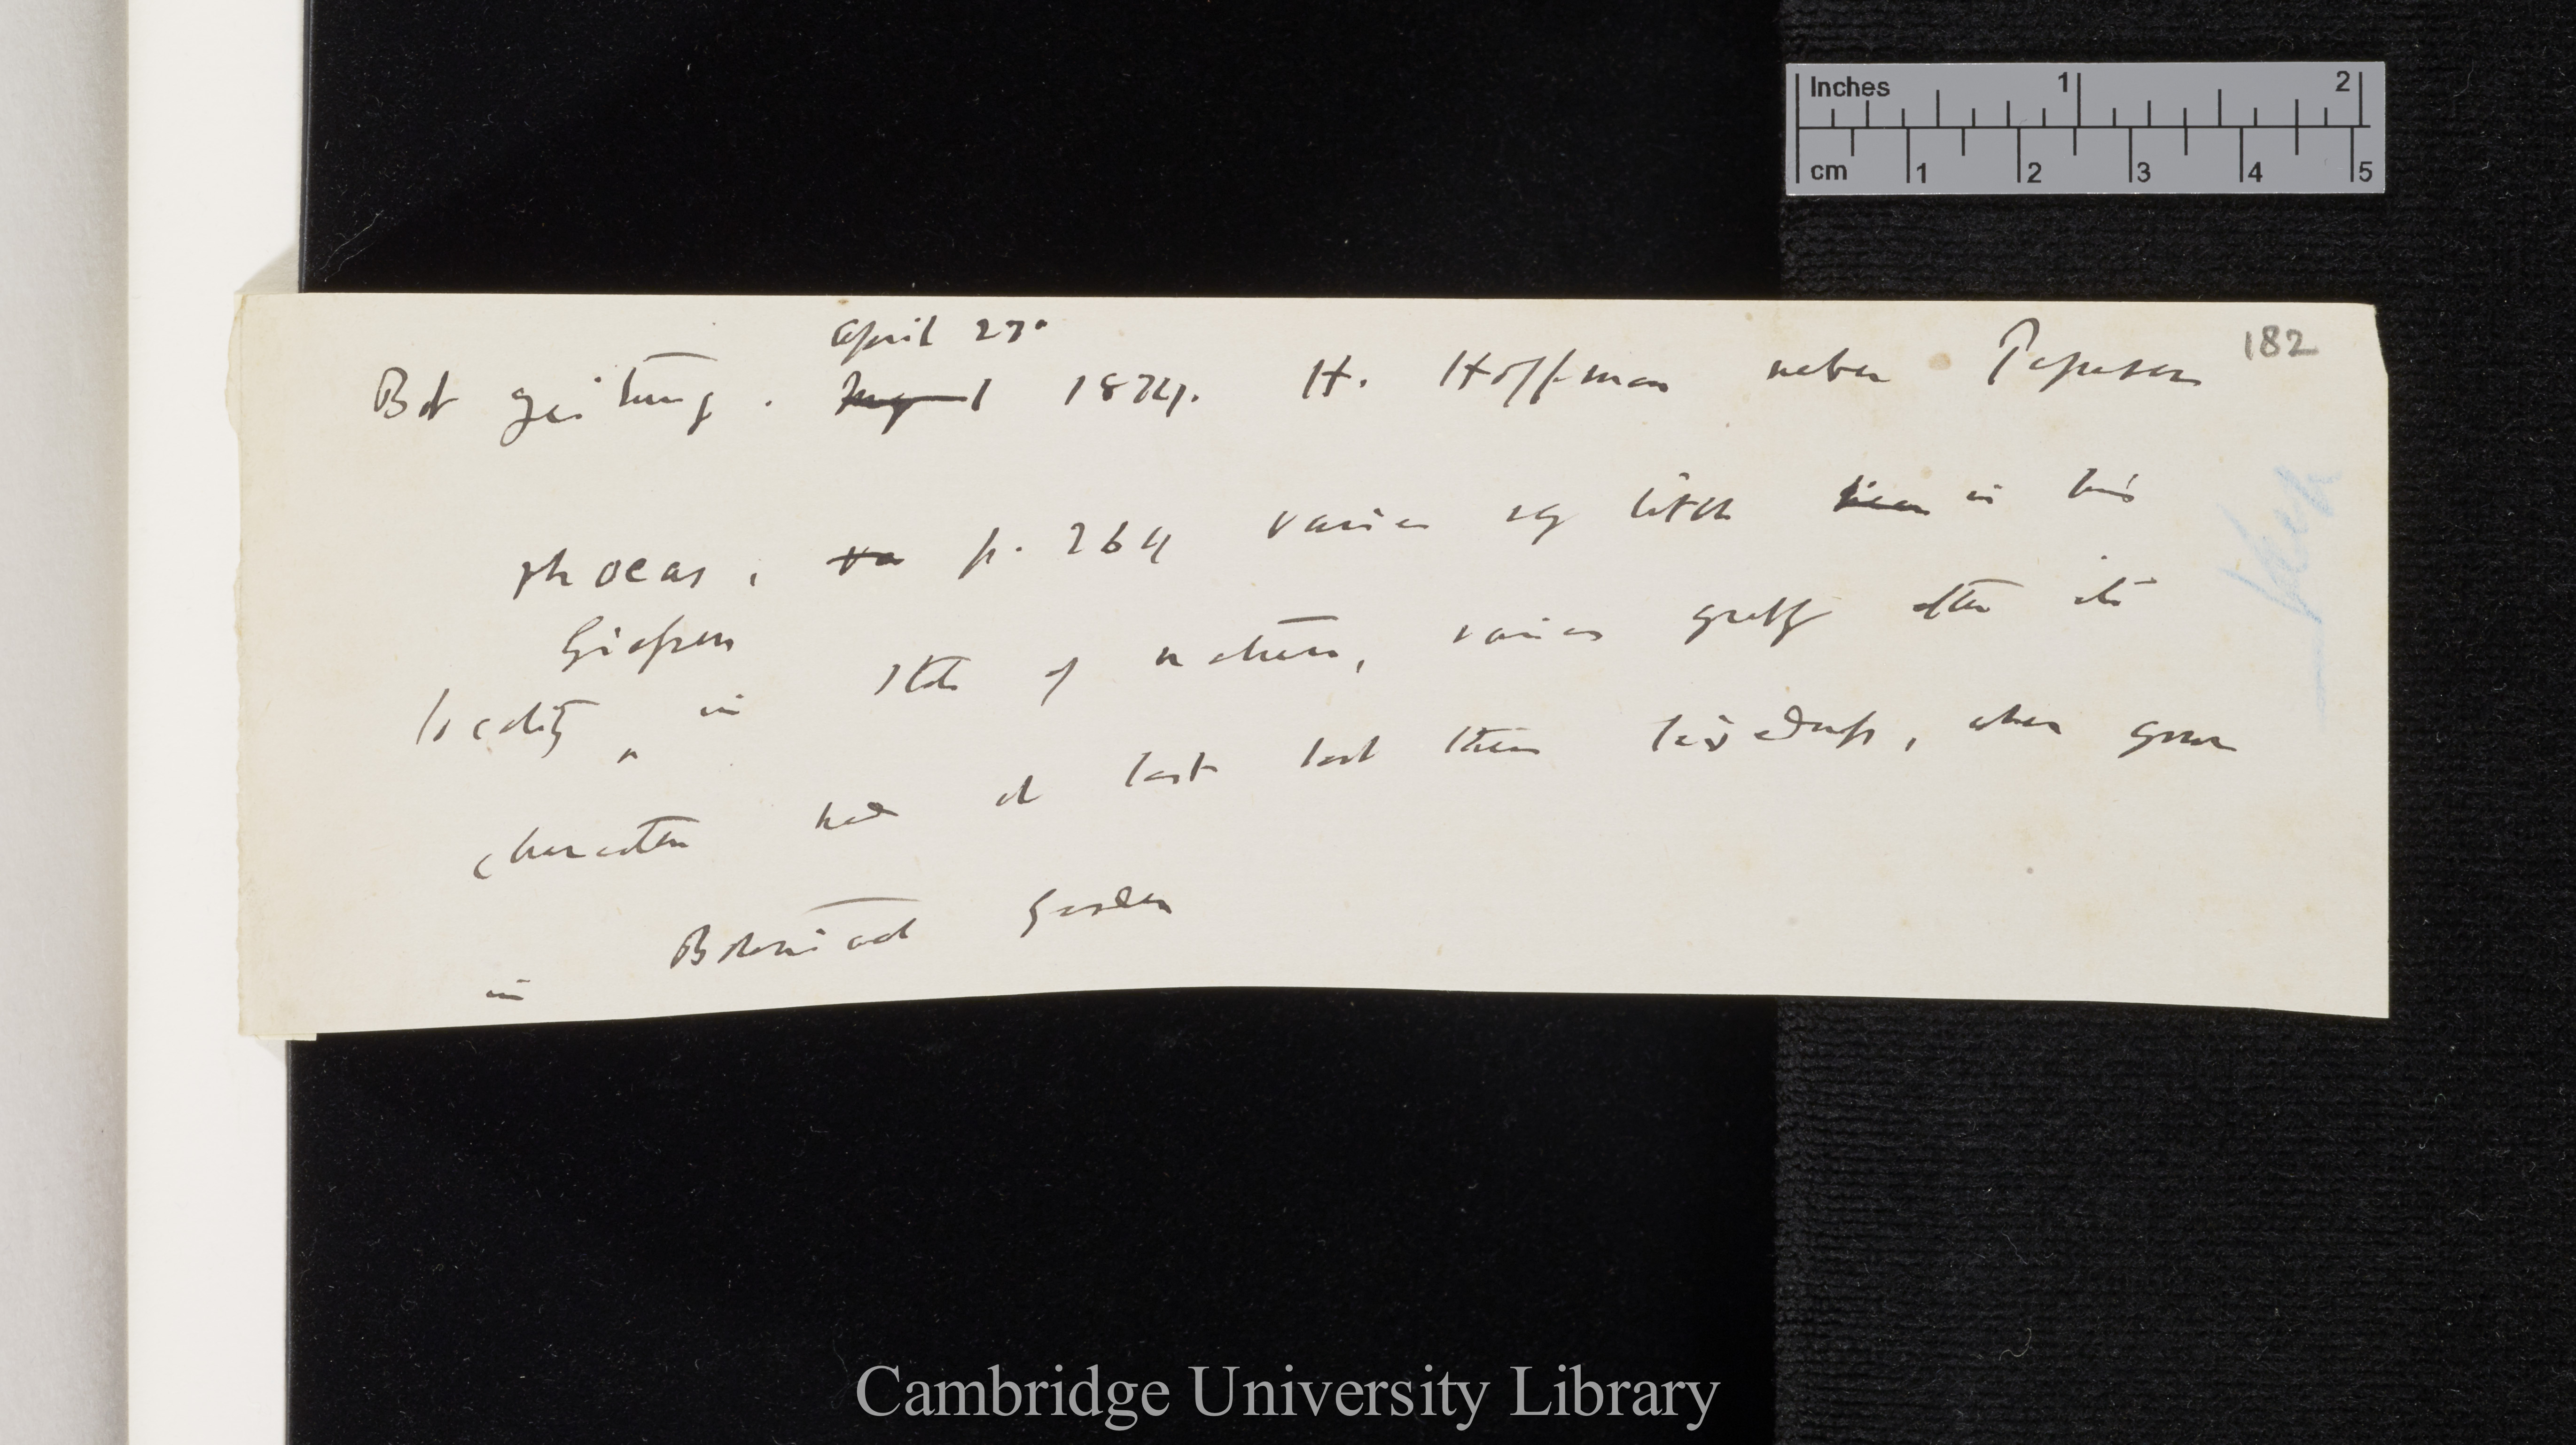 Inches 1 2
cm 1 2 3 4 5
182
April 27°
Bot Zeitung. August 1874. H. Hoffman ueber Papaver
rhoeas, va p. 264 varies very little in his
Giessen
locality in state of nature, varies greatly after its
character had at last lost their fixedness, when grown
in Botanical Garden
Cambridge University Library